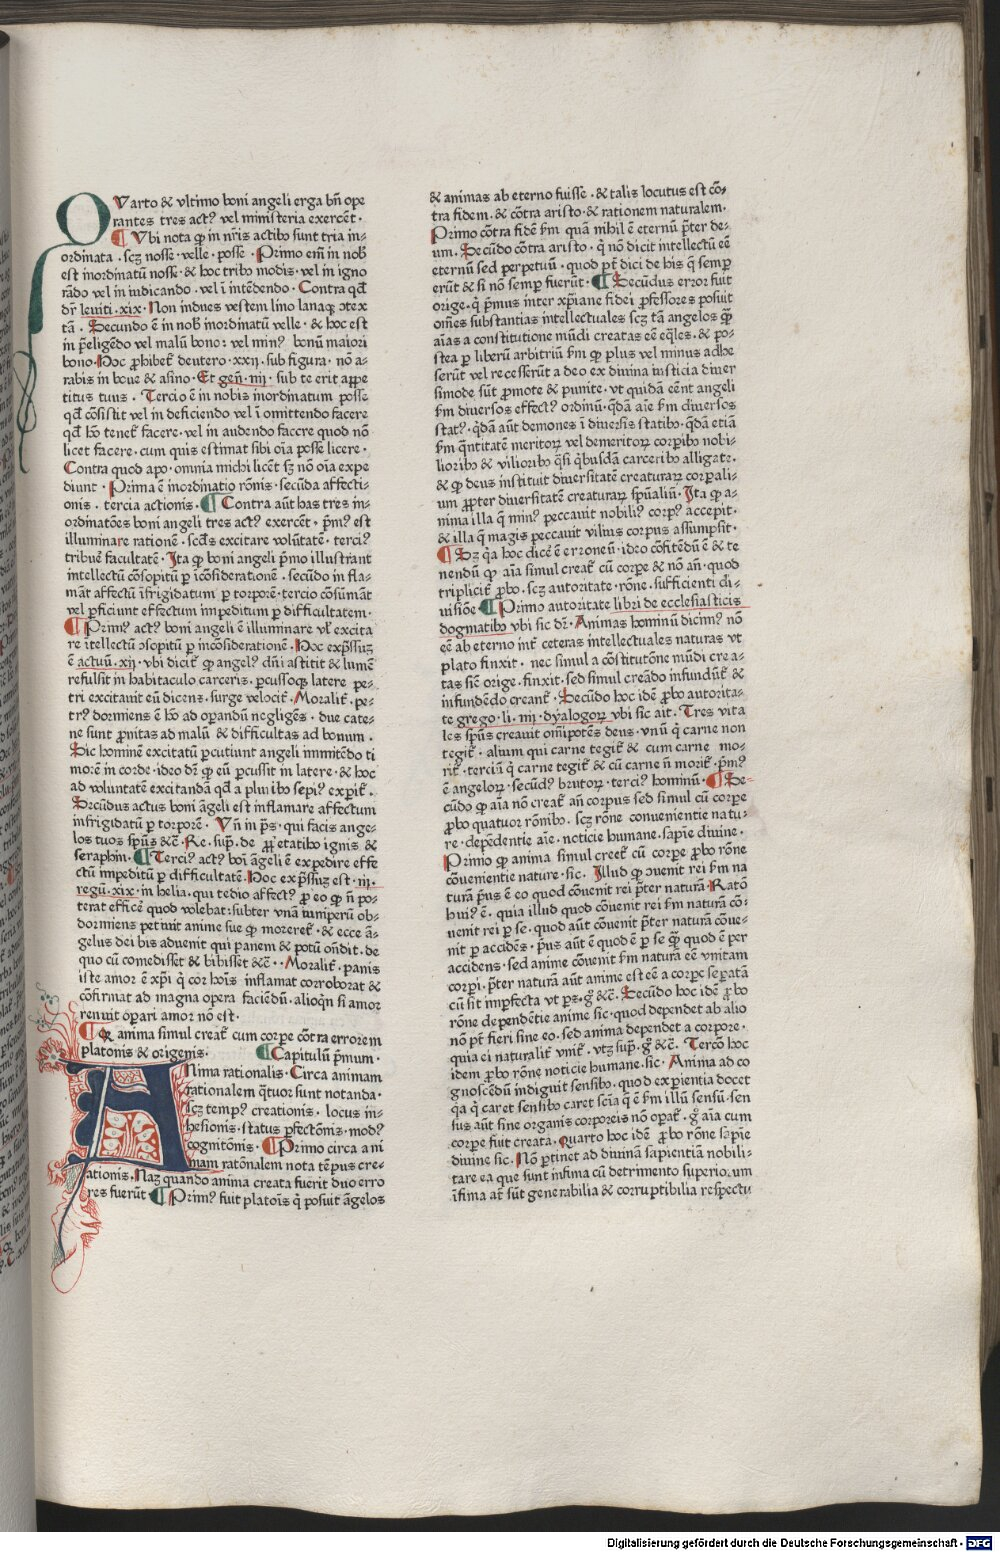 QVarto & vltimo boni angeli erga bn̄ ope
rantes tres actꝰ vel ministeria exercēt.
¶ Vbi nota ꝙ in nr̄is actibꝰ sunt tria in-
ordinata . scꝫ nosse . velle . posse . Primo em̄ in nob̄
est inordinatū nosse . & hoc tribꝰ modis . vel in igno
rādo vel in iudicando . vel ī intēdendo . Contra qd̄
dr̄ leuiti . xix . Non indues vestem lino lanaqꝫ ↄtex
tā . Secundo ē in nob̄ inordinatū velle . & hoc est
in p̄eligēdo vel malū bono: vel minꝰ bonū maiori
bono . Hoc ꝓhibet᷑ deutero . xxij . sub figura . nō a-
rabis in boue & asino . Et gen̄ . iiij . sub te erit appe
titus tuus . Tercio ē in nobis inordinatum posse
qd̄ cōsistit vel in deficiendo vel ī omittendo facere
qd̄ hō tenet᷑ facere . vel in audendo faccre quod nō
licet facere . cum quis estimat sibi oīa posse licere .
Contra quod apo . omnia michi licēt sꝫ nō oīa expe
diunt . Prima ē inordinatio rōnis . secūda affecti-
onis . tercia actionis . ¶ Contra aūt has tres in-
ordinatōes boni angeli tres actꝰ exercēt . p̄mꝰ est
illuminare rationē . scd̄s excitare volūtatē . tercꝰ
tribuē facultatē . Ita ꝙ boni angeli p̄mo illustrant
intellectū cōsopitū ꝑ īcōsiderationē . secūdo in fla-
māt affectū īfrigidatum ꝑ torporē . tercio cōsūmāt
vel ꝑficiunt effectum impeditum ꝑ difficultatem .
¶ Primꝰ actꝰ boni angeli ē illuminare vl̄ excita
re ītellectū ↄsopitū ꝑ incōsiderationē . Hoc exp̄ssuꝫ
ē actuū . xij . vbi dicit᷑ ꝙ angelꝰ dn̄i astitit & lumē
refulsit in habitaculo carceris . ꝑcussoqꝫ latere pe-
tri excitauit eū dicens . surge velocit᷑ . Moralit᷑ . pe-
trꝰ dormiens ē hō ad oꝑandū negligēs . due cate-
ne sunt ꝓnitas ad malū & difficultas ad bonum .
Sic hominē excitatū ꝑcutiunt angeli immitēdo ti
morē in corde . ideo dr̄ ꝙ eū ꝑcussit in latere . & hoc
ad voluntatē excitandā qd̄ a pluribꝰ sepiꝰ exꝑit᷑ .
Secūdus actus boni āgeli est inflamare affectum
infrigidatū ꝑ torporē . Vn̄ in p̄s . qui facis ange-
los tuos sp̄ūs &c̄ . Re . sup̄ . de ꝓprietatibꝰ ignis &
seraphin . ¶ Tercꝰ actꝰ boī āgeli ē expedire effe
ctū impeditū ꝑ difficultatē . Hoc exp̄ssuꝫ est . iij .
regū . xix . in helia . qui tedio affectꝰ ꝓ eo ꝙ n̄ po-
terat efficē quod volebat: subter vnā iuniperū ob-
dormiens petiuit anime sue ꝙ moreret᷑ . & ecce ā-
gelus dei bis aduenit qui panem & potū on̄dit . de
quo cū comedisset & bibisset &c̄ . Moralit᷑ . panis
iste amor ē xp̄i q̇ cor hoīs inflamat corroborat &
cōfirmat ad magna opera faciēdū . alioqn̄ si amor
renuit oꝑari amor nō est .
¶ Ꝙ anima simul creat᷑ cum corꝑe cōtra errorem
platonis & origenis . ¶ Capitulū p̄mum .
ANima rationalis . Circa animam
rationalem qͣtuor sunt notanda .
scꝫ tempꝰ creationis . locus in-
hesionis . status ꝑfectōnis . modꝰ
cognitōnis . ¶ Primo circa a ni
mam ratōnalem nota tēpus cre-
ationis . Naꝫ quando anima creata fuerit duo erro
res fuerūt ¶ Primꝰ fuit platoīs q̇ posuit āgelos
& animas ab eterno fuisse . & talis locutus est cō-
tra fidem . & cōtra aristo . & rationem naturalem .
Primo cōtra fidē ẜm quā nihil ē eternū p̄ter de-
um . Secūdo cōtra aristo . q̇ nō dicit intellectū eē
eternū sed perpetuū . quod pt̄ dici de his q̄ semꝑ
erūt & si nō semꝑ fuerūt . ¶ Secūdus error fuit
orige . q̇ p̄mus inter xp̄iane fidei ꝓfessores posuit
om̄es substantias intellectuales scꝫ tā angelos qͣꝫ
aīas a constitutione mūdi creatas eē eq̄les . & po-
stea ꝑ liberū arbitriū ẜm ꝙ plus vel minus adhe
serūt vel recesserūt a deo ex diuina iusticia diuer
simode sūt ꝓmote & punite . vt quidā cēnt angeli
ẜm diuersos effectꝰ ordinū . qd̄ā aīe ẜm diuersos
statꝰ . qd̄ā aūt demones ī diuersis statibꝰ . qd̄ā etiā
ẜm qͣntitatē meritoꝝ vel demeritoꝝ corꝑibꝰ nobi-
lioribꝰ & vilioribꝰ qͣsi qͥbusdā carceribꝰ alligate .
& ꝙ deus instituit diuersitatē creaturaꝝ corꝑali-
um ꝓpter diuersitatē creaturaꝝ sp̄ūaliū . Ita ꝙ a-
nima illa q̄ minꝰ peccauit nobiliꝰ corpꝰ accepit .
& illa q̄ magis peccauit vilius corpus assumpsit .
¶ Sꝫ qͥa hoc dicē ē erroneū . ideo cōfitēdū ē & te
nendū ꝙ aīa simul creat᷑ cū corꝑe & nō an̄ . quod
triplicit᷑ ꝓbo . scꝫ autoritate . rōne . sufficienti di-
uisiōe ¶ Primo autoritate libri de ecclesiasticis
dogmatibꝰ vbi sic dr̄ . Animas hominū dicimꝰ nō
eē ab eterno int᷑ ceteras intellectuales naturas vt
plato finxit . nec simul a cōstitutōne mūdi crea-
tas siē orige . finxit . sed simul creādo infundūt᷑ &
infundēdo creant᷑ . Secūdo hoc idē ꝓbo autorita-
te grego . li . iiij . dyalogoꝝ vbi sic ait . Tres vita
les sp̄ūs creauit om̄ipotēs deus . vnū q̇ carne non
tegit᷑ . alium qui carne tegit᷑ & cum carne mo-
rit᷑ . terciū q̇ carne tegit᷑ & cū carne n̄ morit᷑ . p̄mꝰ
ē angeloꝝ . secūdꝰ brutoꝝ . tercꝰ hominū . ¶ Se-
cūdo ꝙ aīa nō creat᷑ an̄ corpus sed simul cū corꝑe
ꝓbo quatuor rōnibꝰ . scꝫ rōne conuenientie natu-
re . depēdentie aīe . noticie humane . sapīe diuine .
Primo ꝙ anima simul creet᷑ cū corꝑe ꝓbo rōne
cōuenientie nature . sic . Illud ꝙ ↄuenit rei ẜm na
turā p̄us ē eo quod cōuenit rei p̄ter naturā . Ratō
huiꝰ ē . quia illud quod cōuenit rei ẜm naturā cō-
uenit rei ꝑ se . quod aūt cōuenit p̄ter naturā cōue-
nit ꝑ accidēs . p̄us aūt ē quod ē ꝑ se qͣꝫ quod ē per
accidens . sed anime cōuenit ẜm naturā eē vnitam
corꝑi . p̄ter naturā aūt anime est eē a corꝑe seꝑatā
cū sit imꝑfecta vt pꝫ . gͦ &c̄ . Secūdo hoc idē ꝓbo
rōne dependētie anime sic . quod dependet ab alio
nō pt̄ fieri sine eo . sed anima dependet a corpore .
quia ei naturalit᷑ vnit᷑ . vtꝫ sup̄ . gͦ &c̄ . Tercō hoc
idem ꝓbo rōne noticie humane . sic . Anima ad co
gnoscēdū indiguit sensibꝰ . quod exꝑientia docet
qͥa q̇ caret sensibꝰ caret scīa q̄ ē ẜm illū sensū . sen
sus aūt sine organis corporeis nō oꝑat᷑ . gͦ aīa cum
corꝑe fuit creata . Quarto hoc idē ꝓbo rōne sapīe
diuine sic . Nō ꝑtinet ad diuinā sapientiā nobili-
tare ea que sunt infima cū detrimento superioꝝ . um
īfima at̄ sūt generabilia & corruptibilia respectu
Digitalisierung gefördert durch die Deutsche Forschungsgemeinschaft - DFG